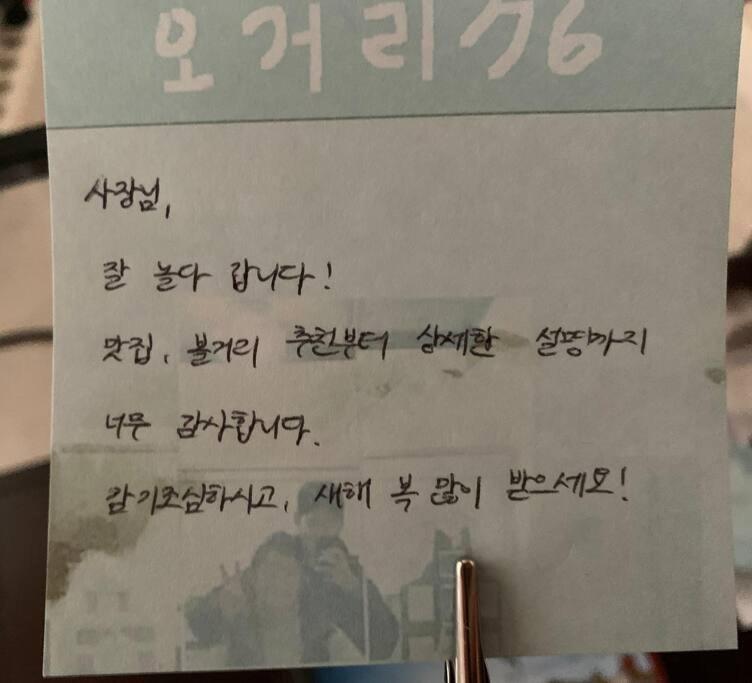 오거리76
사장님,
잘 놀다 갑니다!
맛집, 볼거리 추천부터 상세한 설명까지
너무 감사합니다.
감기조심하시고, 새해 복 많이 받으세요!